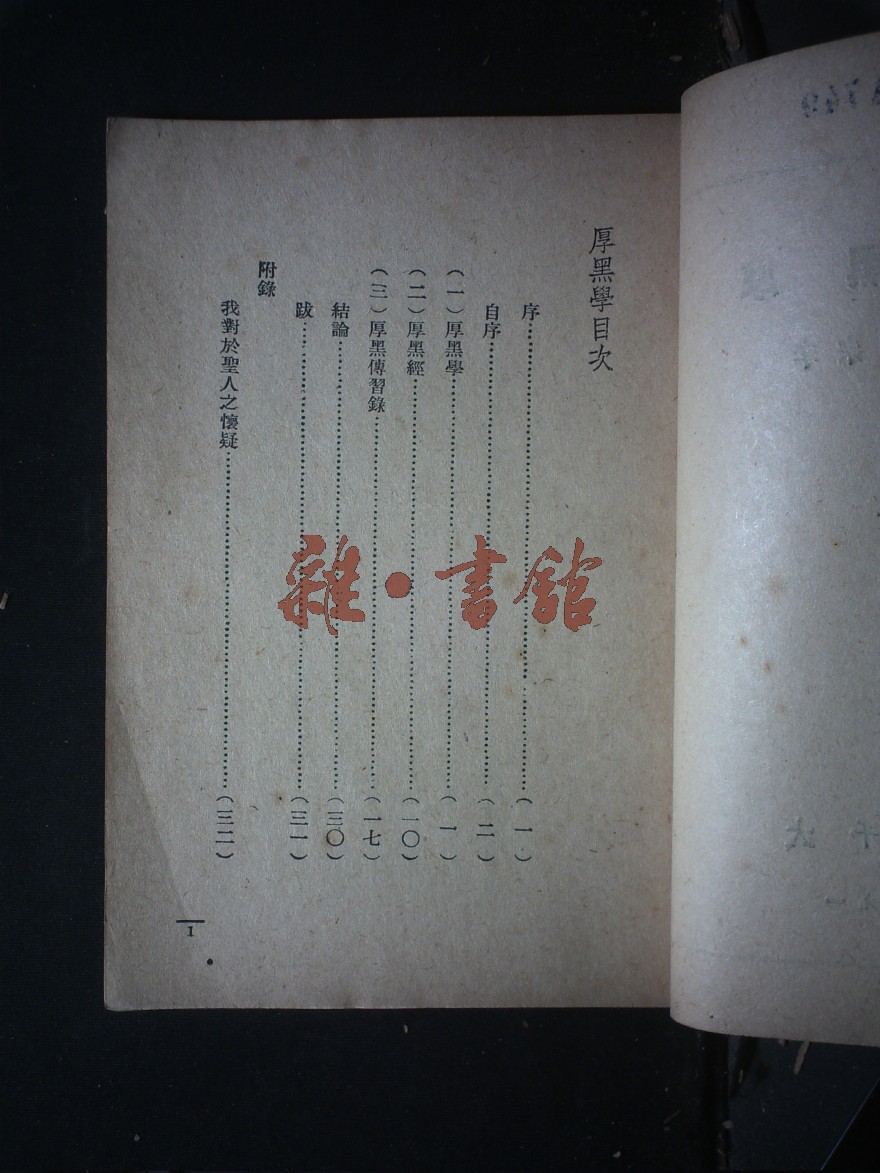 厚黑學目次
序…………(一)
自序…………(二)
(一)厚黑學…………(一)
(二)厚黑經…………(一〇)
(三)厚黑傳習錄…………(一七)
結論…………(三〇)
跋…………(三一)
附錄
我對於聖人之懷疑…………(三二)
I
雜·書館